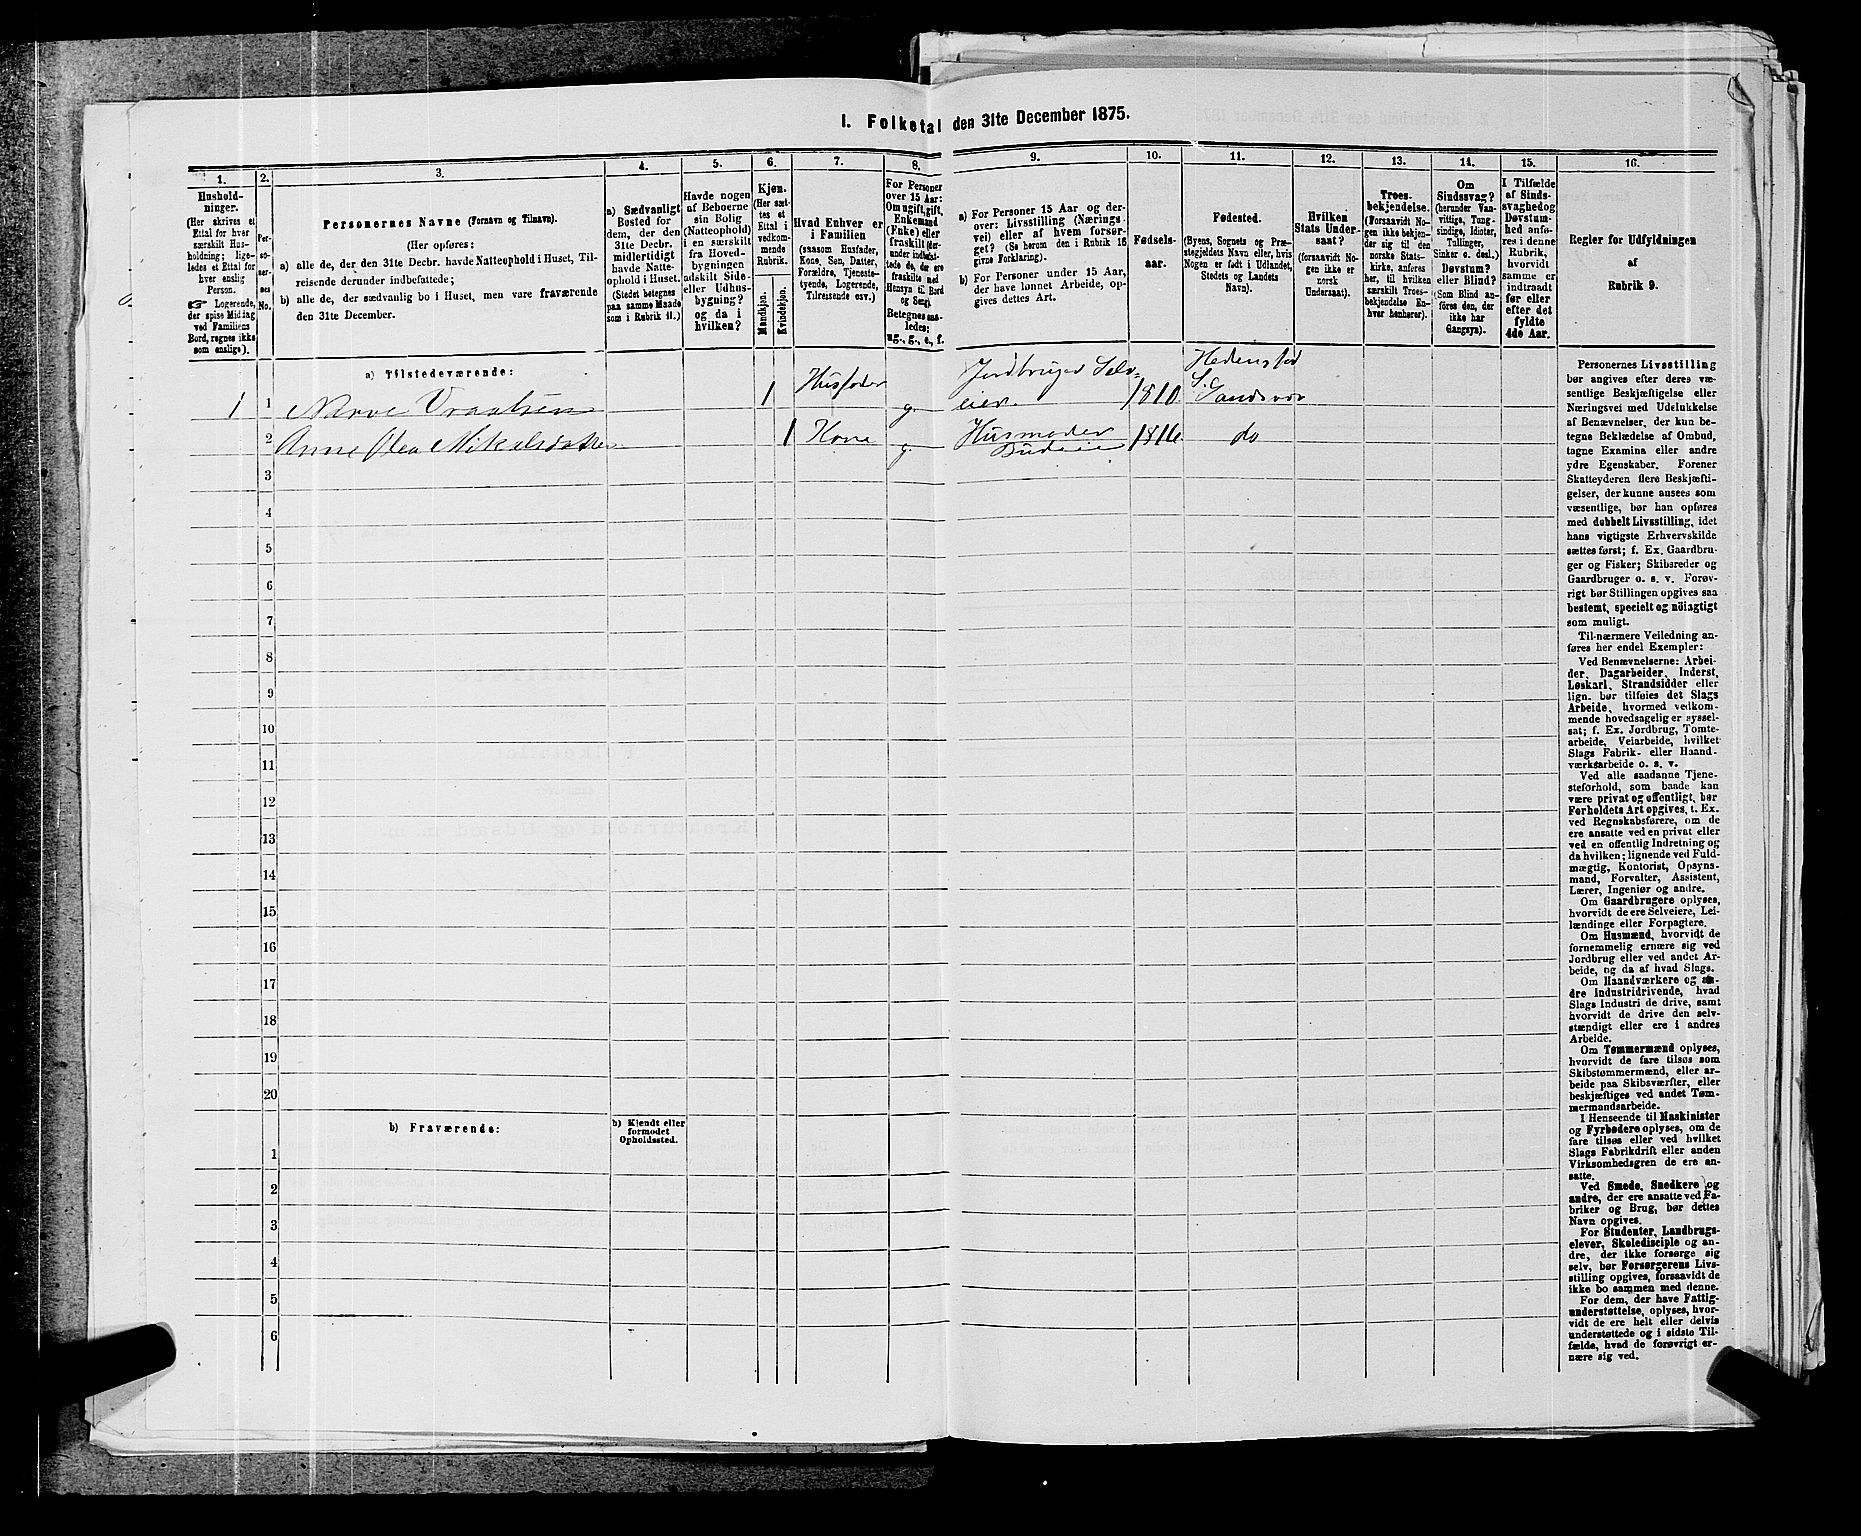 I. Folketal den 31te December 1875.
1.
2.
3.
4.
5.
6.
7.
8.
9.
10.
11.
12.
13.
14.
15.
16.
Hushold-
ninger.
(Her skrives et
Ettal for hver
særskilt Hus-
holdning; lige-
ledes et Ettal for
hver enslig
Person.
☞ Logerende,
der spise Middag
ved Familiens
Bord, regnes ikke
som enslige).
Per-
so-
ner-
nes
No.
Personernes Navne (Fornavn og Tilnavn).
(Her opføres:
a) alle de, der den 31te Decbr. havde Natteophold i Huset, Til-
reisende derunder indbefattede;
b) alle de, der sædvanlig bo i Huset, men vare fraværende
den 31te December.
a) Sædvanligt
Bosted for
dem, der den
31te Decbr.
midlertidigt
havde Natte-
ophold i Huset.
(Stedet betegnes
paa samme Maade
som i Rubrik 11.)
Havde nogen
af Beboerne
sin Bolig
(Natteophold)
i en særskilt
fra Hoved-
bygningen
adskilt Side-
eller Udhus-
bygning?
og da i
hvilken?
Kjøn.
(Her sæt-
tes et
Ettal i
vedkom-
mende
Rubrik.
Mandkjøn.
Kvindekjøn.
Hvad Enhver er
i Familien
(saasom Husfader,
Kone, Søn, Datter,
Forældre, Tjeneste-
tyende, Logerende,
Tilreisende osv.)
For Personer
over 15 Aar:
Om ugift, gift,
Enkemand
(Enke) eller
fraskilt (der-
under indbefat-
tede de, der ere
fraskilte med
Hensyn til Bord
og Seng).
Betegnes saa-
ledes:
ug., g., e., f.
a) For Personer 15 Aar og der-
over: Livsstilling (Nærings-
vei) eller af hvem forsør-
get? (Se herom den i Rubrik 16
givne Forklaring).
b) For Personer under 15 Aar,
der have lønnet Arbeide, op-
gives dettes Art.
Fødsels-
aar.
Fødested.
(Byens, Sognets og Præ-
stegjeldets Navn eller, hvis
Nogen er født i Udlandet,
Stedets og Landets
Navn).
Hvilken
Stats Under-
saat?
(forsaavidt No-
gen ikke er
norsk
Undersaat).
Troes-
bekjendelse.
(Forsaavidt No-
gen ikke bekjen-
der sig til den
norske Stats-
kirke, anføres
her, til hvilken
særskilt Troes-
bekjendelse En-
hver henhører).
Om
Sindssvag?
(herunder Van-
vittige, Tung-
sindige, Idioter,
Tullinger,
Sinker o. desl.)
Døvstum?
eller Blind?
(Som Blind an-
føres den, der
ikke har
Gangsyn).
I Tilfælde
af Sinds-
svaghed og
Døvstum-
hed anfø-
res i denne
Rubrik,
hvorvidt
samme er
indtraadt
før eller
efter det
fyldte
4de Aar.
Regler for Udfyldningen
af
Rubrik 9.
a) Tilstedeværende:
1 1 Narve Vraalsen 1 Husfader g. Jordbruger Selv-
eier 1810 Hedenstad
S. Sandsvær
2 Anne Olea Mikalsdatter 1 Kone g. Husmoder
Budeie 1816 do
3
4
5
6
7
8
9
10
11
12
13
14
15
16
17
18
19
20
b) Fraværende:
b) Kjendt eller
formodet
Opholdssted.
1
2
3
4
5
6
Personernes Livsstilling
bør angives efter deres væ-
sentlige Beskjæftigelse eller
Næringsvei med Udelukkelse
af Benævnelser, der kun be-
tegne Beklædelse af Ombud,
tagne Examina eller andre
ydre Egenskaber. Forener
Skatteyderen flere Beskjæfti-
gelser, der kunne ansees som
væsentlige, bør han opføres
med dobbelt Livsstilling, idet
hans vigtigste Erhvervskilde
sættes først; f. Ex. Gaardbru-
ger og Fisker; Skibsreder og
Gaardbruger o. s. v. Forøv-
rigt bør Stillingen opgives saa
bestemt, specielt og nøiagtigt
som muligt.
Til nærmere Veiledning an-
føres her endel Exempler:
Ved Benævnelserne: Arbei-
der, Dagarbeider, Inderst,
Løskarl, Strandsidder eller
lign. bør tilføies det Slags
Arbeide, hvormed vedkom-
mende hovedsagelig er syssel-
sat; f. Ex. Jordbrug, Tomte-
arbeide, Veiarbeide, hvilket
Slags Fabrik- eller Haand-
værksarbeide o. s. v.
Ved alle saadanne Tjene-
steforhold, som baade kan
være privat og offentligt, bør
Forholdets Art opgives, t. Ex.
ved Regnskabsførere, om de
ere ansatte ved en privat eller
ved en offentlig Indretning og
da hvilken; lignende ved Fuld-
mægtig, Kontorist, Opsyns-
mand, Forvalter, Assistent,
Lærer, Ingeniør og andre.
Om Gaardbrugere oplyses,
hvorvidt de ere Selveiere, Lei-
lændinge eller Forpagtere.
Om Husmænd, hvorvidt de
fornemmelig ernære sig ved
Jordbrug eller ved andet Ar-
beide, og da af hvad Slags.
Om Haandværkere og an-
dre Industridrivende, hvad
Slags Industri de drive, samt
hvorvidt de drive den selv-
stændigt eller ere i andres
Arbeide.
Om Tømmermænd oplyses,
hvorvidt de fare tilsøs som
Skibstømmermænd, eller ar-
beide paa Skibsværfter, eller
beskjæftiges ved andet Tøm-
mermandsarbeide.
I Henseende til Maskinister
og Fyrbødere oplyses, om de
fare tilsøs eller ved hvilket
Slags Fabrikdrift eller anden
Virksomhedsgren de ere an-
satte.
Ved Smede, Snedkere og
andre, der ere ansatte ved Fa-
briker og Brug, bør dettes
Navn opgives.
For Studenter, Landbrugs-
elever, Skoledisciple og an-
dre, der ikke forsørge sig
selv, bør Forsørgerens Livs-
stilling opgives, forsaavidt de
ikke bo sammen med denne.
For dem, der have Fattig-
understøttelse, oplyses, hvor-
vidt de ere helt eller delvis
understøttede og i sidste Til-
fælde, hvad de forøvrigt er-
nære sig ved.